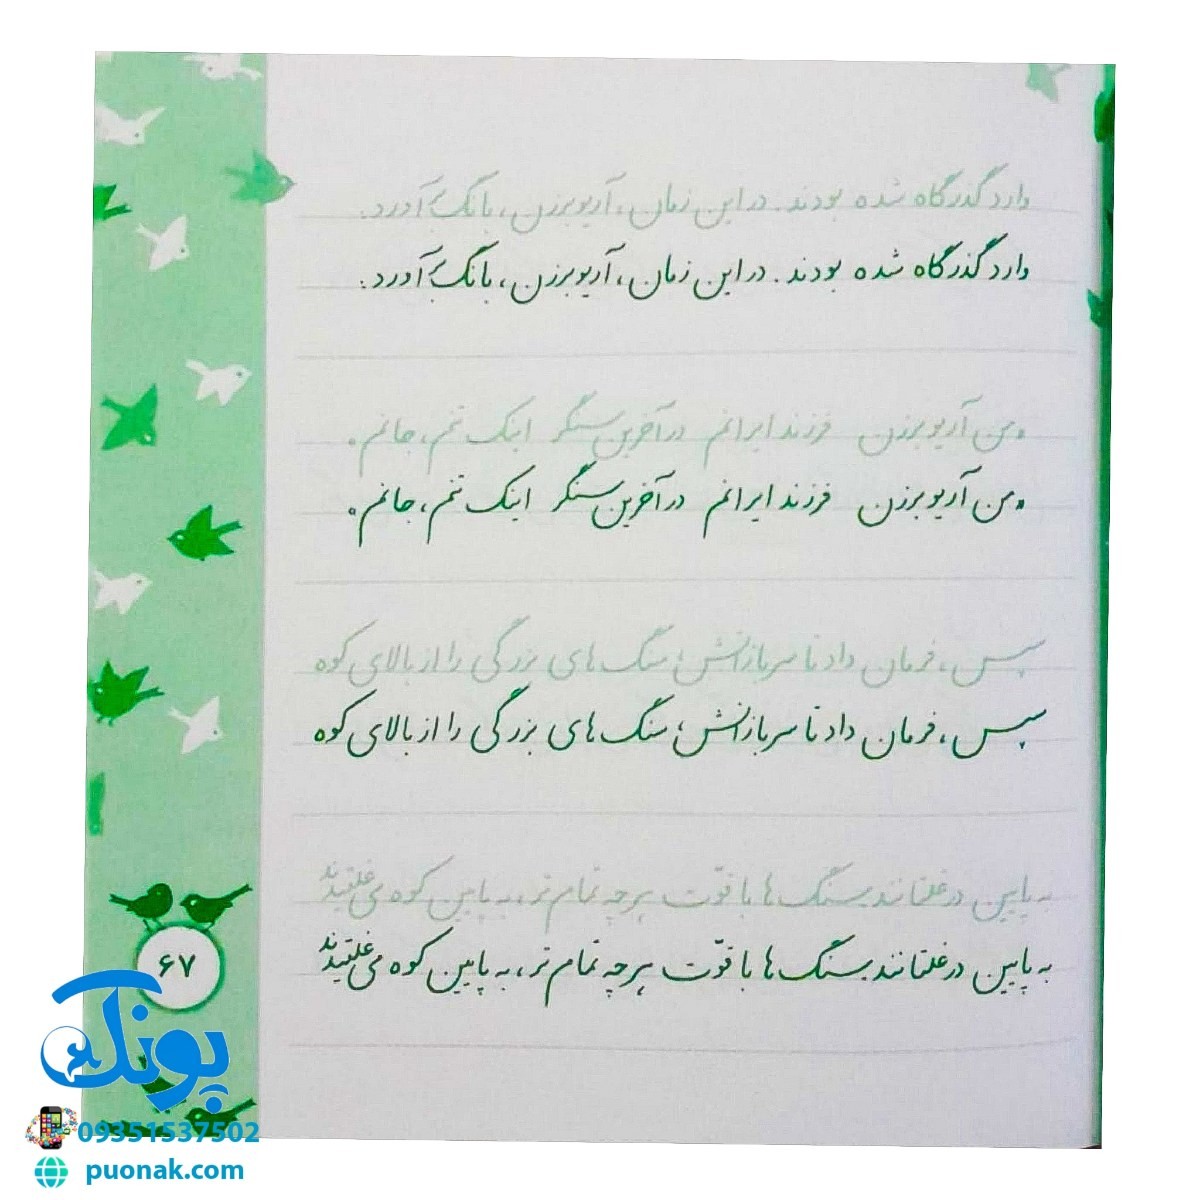 وارد گذرگاه شده بودند. در این زمان، آریوبرزن، بانگ بَرآورد:
وارد گذرگاه شده بودند. در این زمان، آریوبرزن، بانگ بَرآورد:
«من آریوبرزن فرزند ایرانم در آخرین سنگر اینک تنم، جانم»
«من آریوبرزن فرزند ایرانم در آخرین سنگر اینک تنم، جانم»
سپس، فرمان داد تا سربازانش؛ سنگ های بزرگی را از بالای کوه
سپس، فرمان داد تا سربازانش؛ سنگ های بزرگی را از بالای کوه
به پایین درغلتانند. سنگ ها با قوّت هر چه تمام تر، به پایین کوه می غلتیدند
به پایین درغلتانند. سنگ ها با قوّت هر چه تمام تر، به پایین کوه می غلتیدند
۶۷
پونک
09351537502
puonak.com